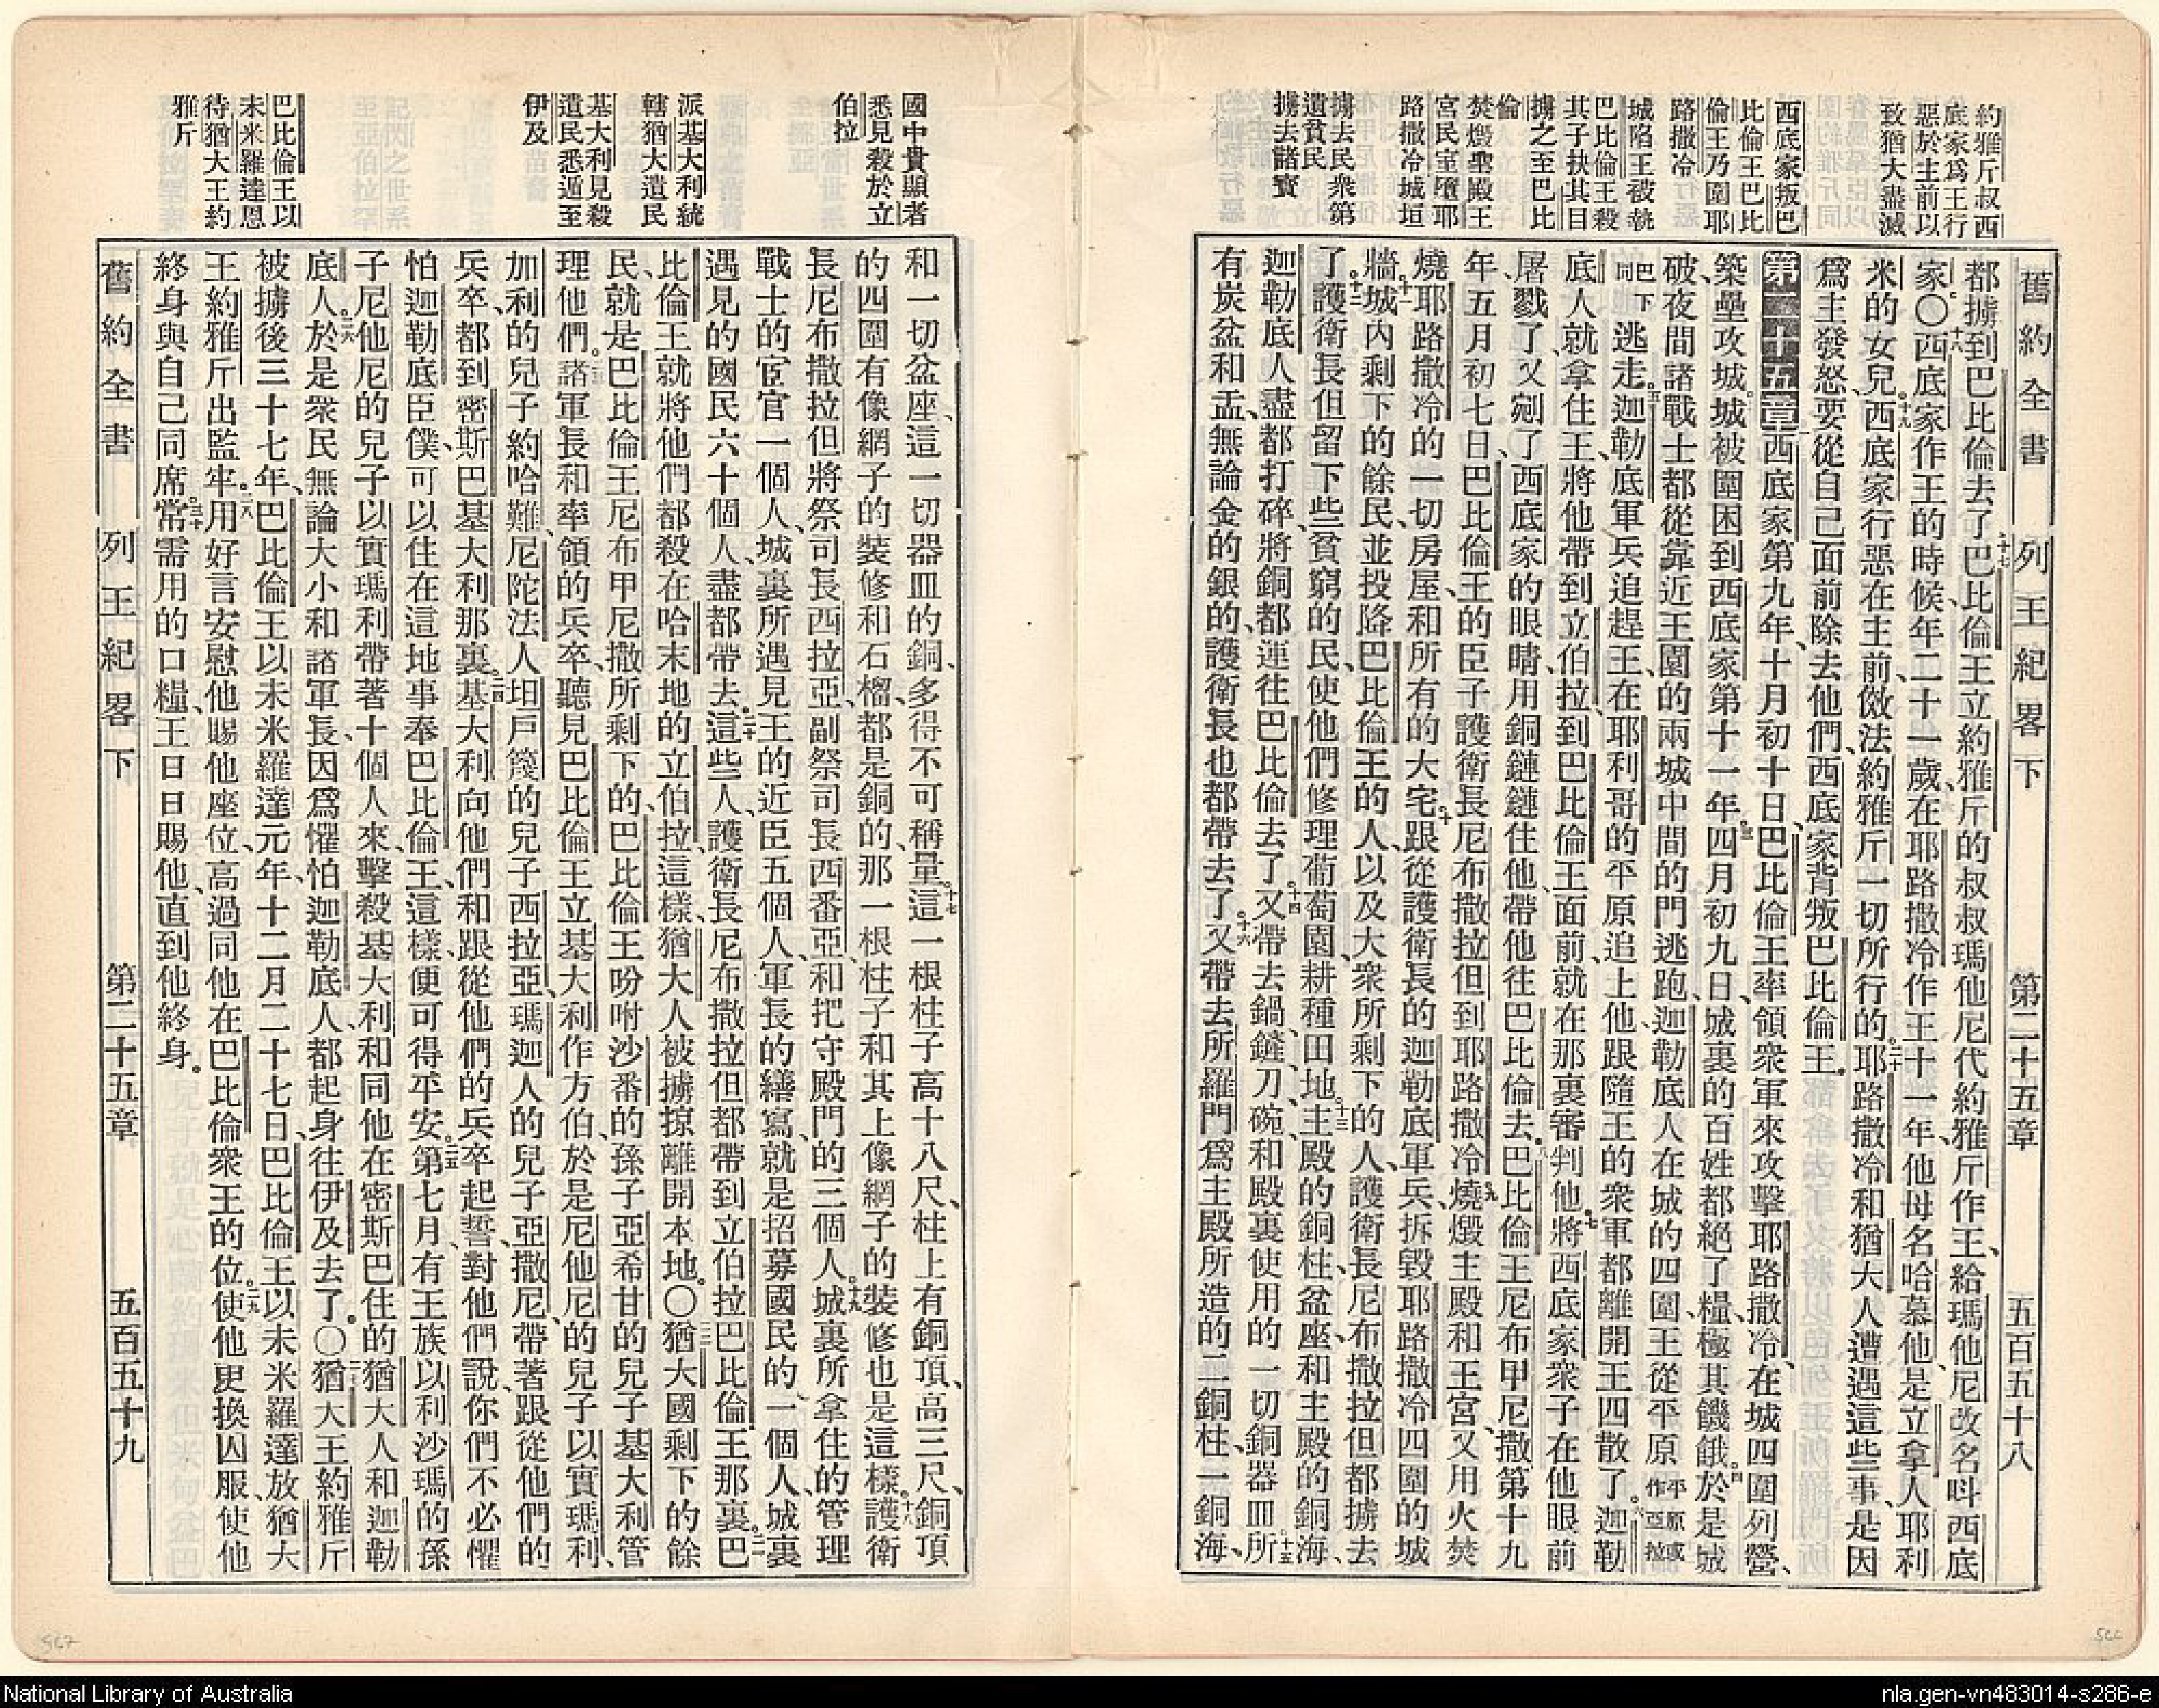 約雅斤叔西
底家爲王行
惡於主前以
致猶大盡滅
西底家叛巴
比倫王巴比
倫王乃圍耶
路撒冷
城陷王被執
巴比倫王殺
其子抉其目
擄之至巴比
倫
焚燬聖殿王
宮民室墮耶
路撒冷城垣
擄去民衆第
遺貧民
擄去諸寶
舊約全書 列王紀畧下 第二十五章 五百五十八
都擄到巴比倫去了十七巴比倫王立約雅斤的叔叔瑪他尼代約雅斤作王、給瑪他尼改名呌西底
家。〇十八西底家作王的時候、年二十一歲、在耶路撒冷作王十一年、他母名哈慕他、是立拿人耶利
米的女兒。十九西底家行惡在主前、傚法約雅斤一切所行的。二十耶路撒冷和猶大人遭遇這些事、是因
爲主發怒、要從自己面前除去他們、西底家背叛巴比倫王。
第二十五章 西底家第九年、十月初十日、巴比倫王率領衆軍來攻擊耶路撒冷、在城四圍列營、
築壘攻城。二城被圍困到西底家第十一年。三四月初九日、城裏的百姓都絕了糧、極其饑餓。四於是城
破、夜間諸戰士都從靠近王園的兩城中間的門逃跑、迦勒底人在城的四圍、王從平原平原或作亞拉
巴下同逃走。五迦勒底軍兵追趕王、在耶利哥的平原追上他、跟隨王的衆軍都離開王四散了。六迦勒
底人就拿住王、將他帶到立伯拉到巴比倫王面前、就在那裏審判他。七將西底家衆子在他眼前
屠戮了、又剜了西底家的眼睛、用銅鏈鏈住他、帶他往巴比倫去。八巴比倫王尼布甲尼撒第十九
年五月初七日、巴比倫王的臣子護衛長尼布撒拉但到耶路撒冷。九燒燬主殿和王宮、又用火焚
燒耶路撒冷的一切房屋、和所有的大宅。十跟從護衛長的迦勒底軍兵、拆毀耶路撒冷四圍的城
牆。十一城內剩下的餘民、並投降巴比倫王的人、以及大衆所剩下的人、護衛長尼布撒拉但都擄去
了。十二護衛長但留下些貧窮的民、使他們修理葡萄園、耕種田地。十三主殿的銅柱、盆座、和主殿的銅海、
迦勒底人盡都打碎、將銅都運往巴比倫去了。十四又帶去鍋、鏟、刀、碗、和殿裏使用的一切銅器皿。十五所
有炭盆和盂、無論金的銀的、護衛長也都帶去了。十六又帶去所羅門爲主殿所造的二銅柱、一銅海、
國中貴顯者
悉見殺於立
伯拉
派基大利統
轄猶大遺民
基大利見殺
遺民悉遁至
伊及
巴比倫王以
未米羅達恩
待猶大王約
雅斤
和一切盆座、這一切器皿的銅、多得不可稱量。十七這一根柱子高十八尺、柱上有銅頂、高三尺、銅頂
的四圍有像網子的裝修和石榴、都是銅的、那一根柱子和其上像網子的裝修也是這樣。十八護衛
長尼布撒拉但將祭司長西拉亞、副祭司長西番亞、和把守殿門的三個人。十九城裏所拿住的管理
戰士的宦官一個人、城裏所遇見王的近臣五個人、軍長的繕寫、就是招募國民的、一個人、城裏
遇見的國民六十個人、盡都帶去。二十這些人、護衛長尼布撒拉但都帶到立伯拉巴比倫王那裏。二一巴
比倫王就將他們都殺在哈末地的立伯拉、這樣、猶大人被擄掠離開本地。〇二二猶大國剩下的餘
民、就是巴比倫王尼布甲尼撒所剩下的、巴比倫王吩咐沙番的孫子亞希甘的兒子基大利管
理他們。二三諸軍長和率領的兵卒、聽見巴比倫王立基大利作方伯、於是尼他尼的兒子以實瑪利、
加利的兒子約哈難、尼陀法人坦戶篾的兒子西拉亞、瑪迦人的兒子亞撒尼、帶著跟從他們的
兵卒、都到密斯巴基大利那裏。二四基大利向他們和跟從他們的兵卒起誓、對他們說、你們不必懼
怕迦勒底臣僕、可以住在這地、事奉巴比倫王、這樣便可得平安。二五第七月有王族以利沙瑪的孫
子尼他尼的兒子以實瑪利帶著十個人來、擊殺基大利和同他在密斯巴住的猶大人和迦勒
底人。二六於是衆民無論大小和諸軍長、因爲懼怕迦勒底人、都起身往伊及去了。〇二七猶大王約雅斤
被擄後三十七年、巴比倫王以未米羅達元年、十二月二十七日、巴比倫王以未米羅達放猶大
王約雅斤出監牢。二八用好言安慰他、賜他座位、高過同他在巴比倫衆王的位。二九使他更換囚服、使他
終身與自己同席。三十常需用的口糧、王日日賜他、直到他終身。
舊約全書 列王紀畧下 第二十五章 五百五十九
567
566
National Library of Australia
nla.gen-vn483014-s286-e